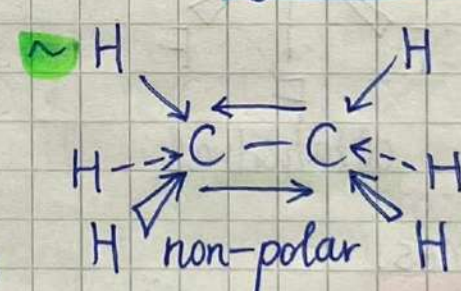 ~ H H
C — C
H H
H non-polar H